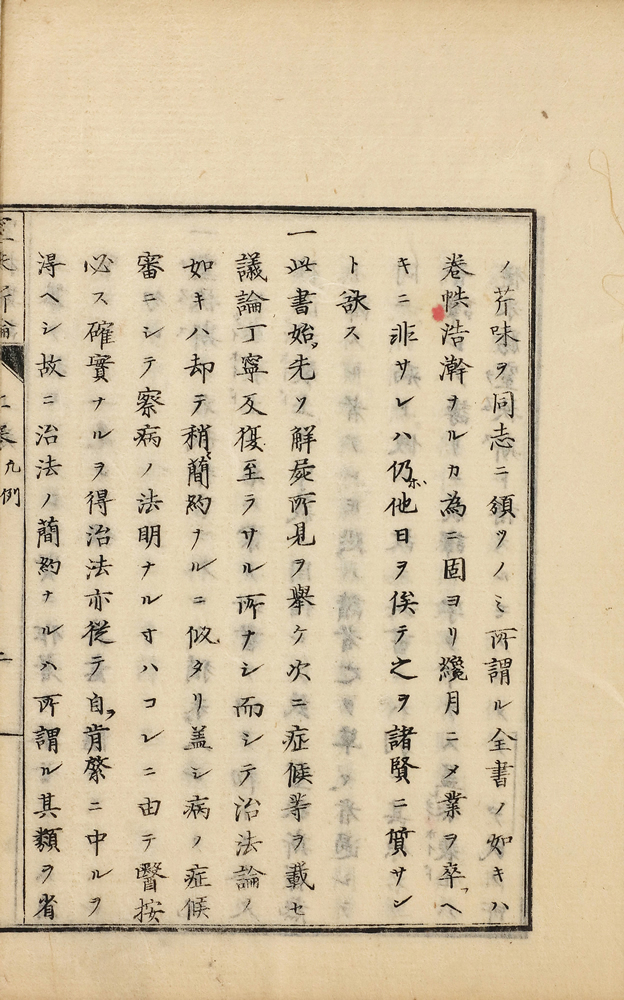 ノ芹味ヲ同志ニ頒ツノミ所謂ル全書ノ如キハ
巻帙浩瀚ナルカ為ニ固ヨリ纔月ニメ業ヲ卒ヘ
キニ非サレハ仍他日ヲ俟テ之ヲ諸賢ニ質サン
ト欲ス
一此書始先ツ解屍所見ヲ擧ケ次ニ症候等ヲ載セ
議論丁寧反復至ラサル所ナシ而シテ治法論ノ
如キハ却テ稍簡約ナルニ似タリ盖シ病ノ症候
審ニシテ察病ノ法明ナル寸ハコレニ由テ醫按
必ス確實ナルヲ得治法亦從テ自肯綮ニ中ルヲ
得ヘシ故ニ治法ノ簡約ナルハ所謂ル其類ヲ省
凡例